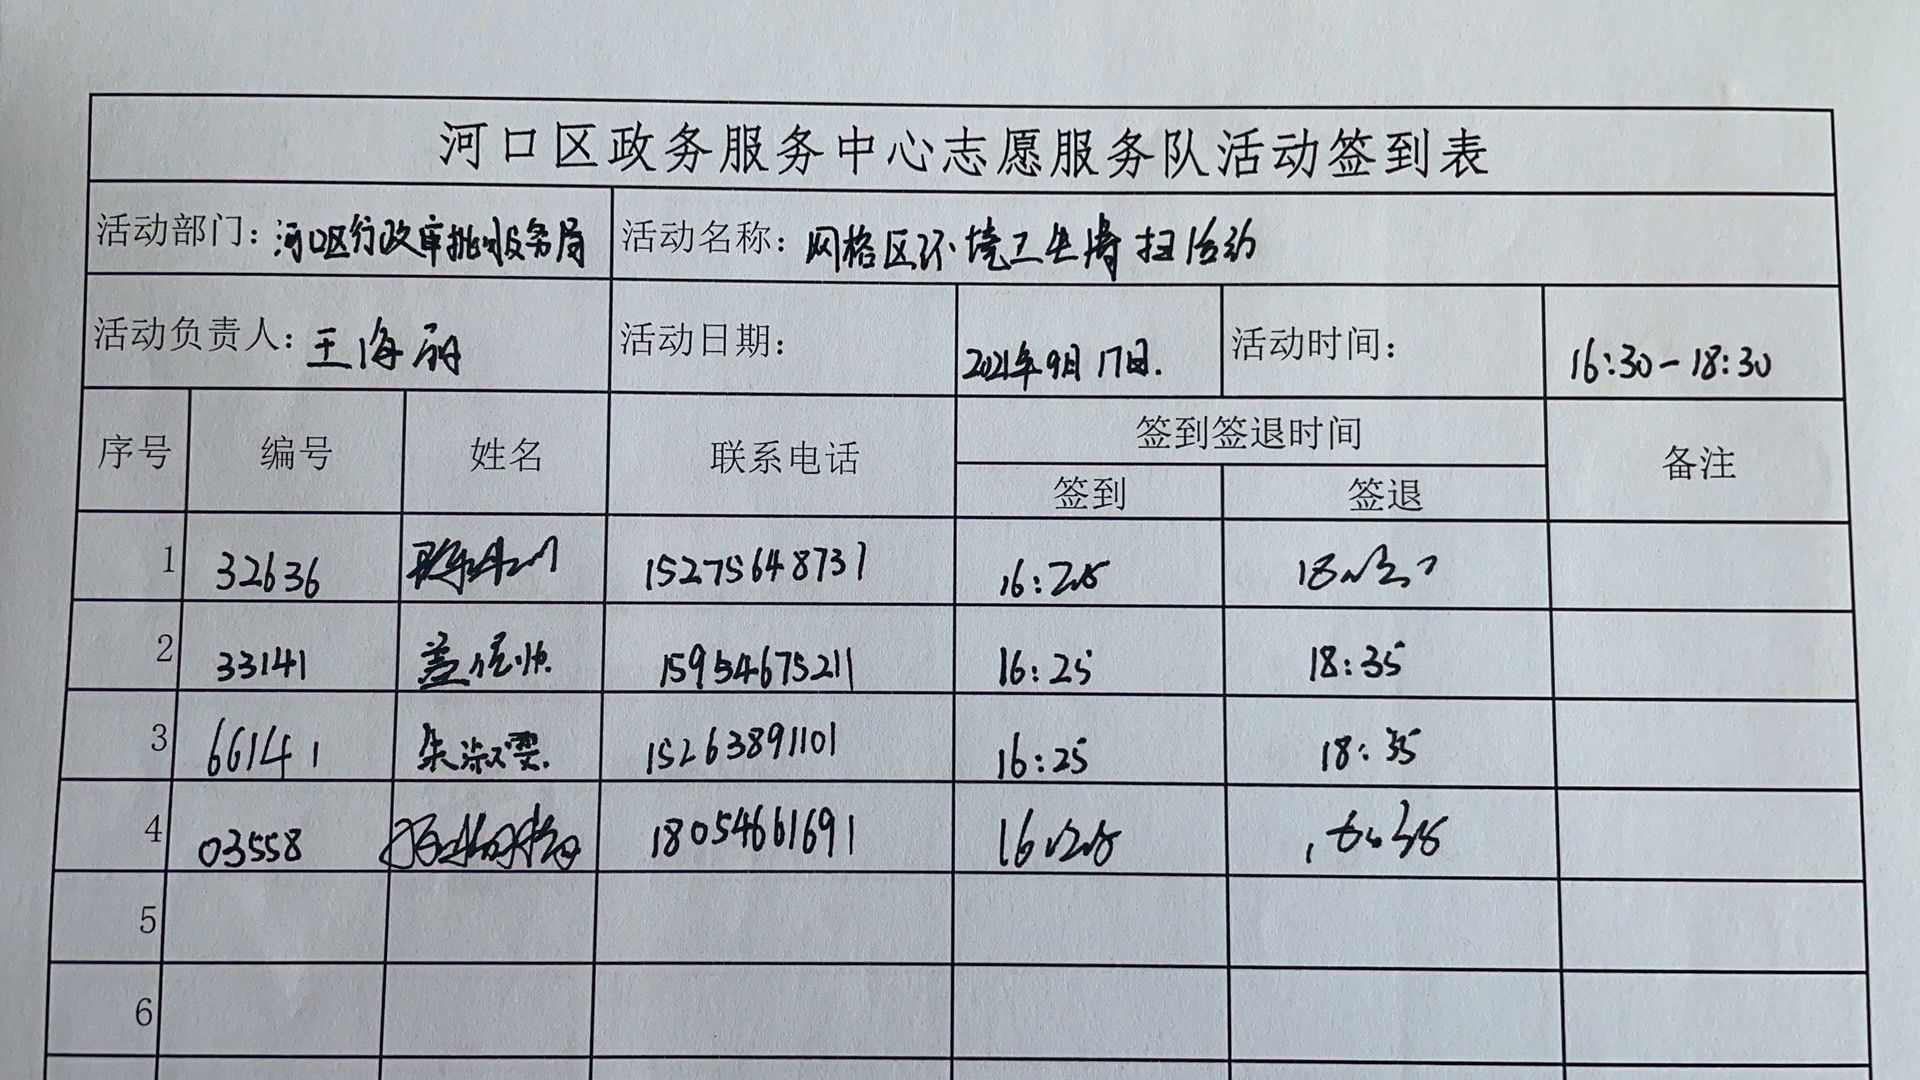 河口区政务服务中心志愿服务队活动签到表
活动部门：河口区行政审批服务局 活动名称：网格区环境卫生清扫活动
活动负责人：王海丽 活动日期： 2021年9月17日. 活动时间： 16:30-18:30
序号 编号 姓名 联系电话 签到签退时间 备注
签到 签退
1 32636 15275648731 16:25
2 33141 15954675211 16:25 18:35
3 66141 朱淑雯 15263891101 16:25 18:35
4 03558 18054661691 16:25
5
6